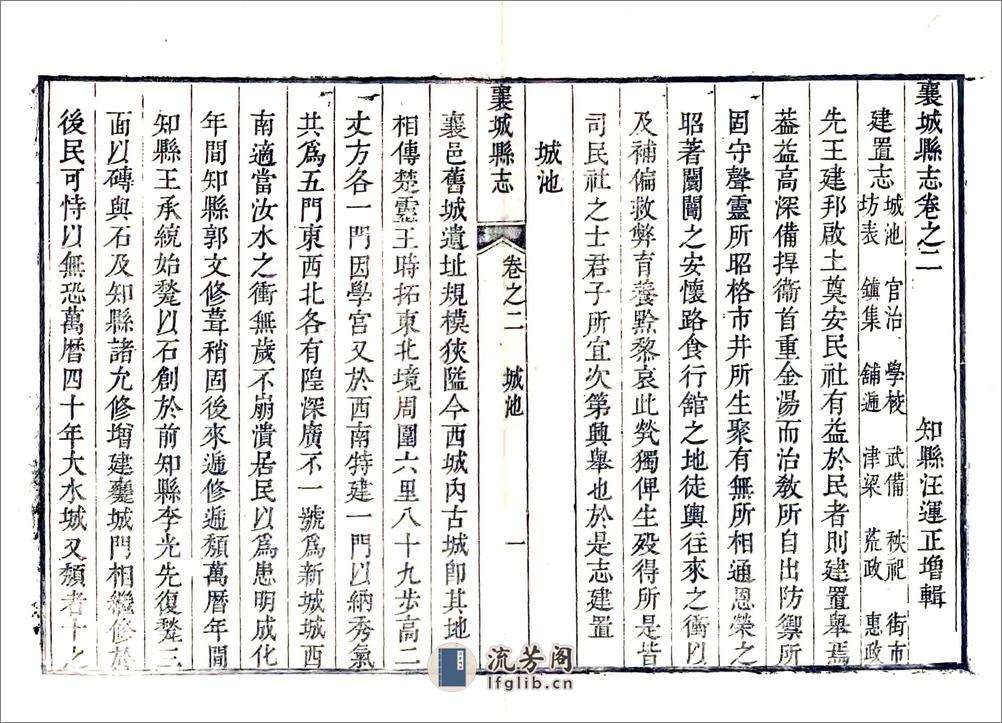 襄城縣志卷之二
知縣汪運正增輯
建置志 城池 官治 學校 武備 秩祀 街市
坊表 鎮集 舖遞 津梁 荒政 惠政
先王建邦啟土奠安民社有益於民者則建置舉焉
葢益高深備捍衞首重金湯而治敎所自出防禦所
固守聲靈所昭格市井所生聚有無所相通恩榮之
昭著闤闠之安懷路食行舘之地徒輿往來之衝以
及補偏救弊育養黔黎哀此煢獨俾生殁得所是皆
司民社之士君子所宜次第興舉也於是志建置
城池
襄城縣志
卷之二 城池 一
襄邑舊城遺址規模狹隘今西城內古城卽其地
相傳楚靈王時拓東北境周圍六里八十九步高二
丈方各一門因學宮又於西南特建一門以納秀氣
共爲五門東西北各有隍深廣不一號爲新城城西
南適當汝水之衝無歲不崩潰居民以爲患明成化
年間知縣郭文修葺稍固後來遞修遞頹萬曆年間
知縣王承統始甃以石創於前知縣李光先復甃三
面以磚與石及知縣諸允修增建甕城門相繼修於
後民可恃以無恐萬曆四十年大水城又頹者十之
流芳閣
lfglib.cn